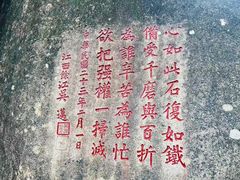 心如此石復如鐵
備受千磨與百折
為誰辛苦為誰忙
欲把強權一掃滅
中華民國二十三年二月一日
江西餘江吳邁